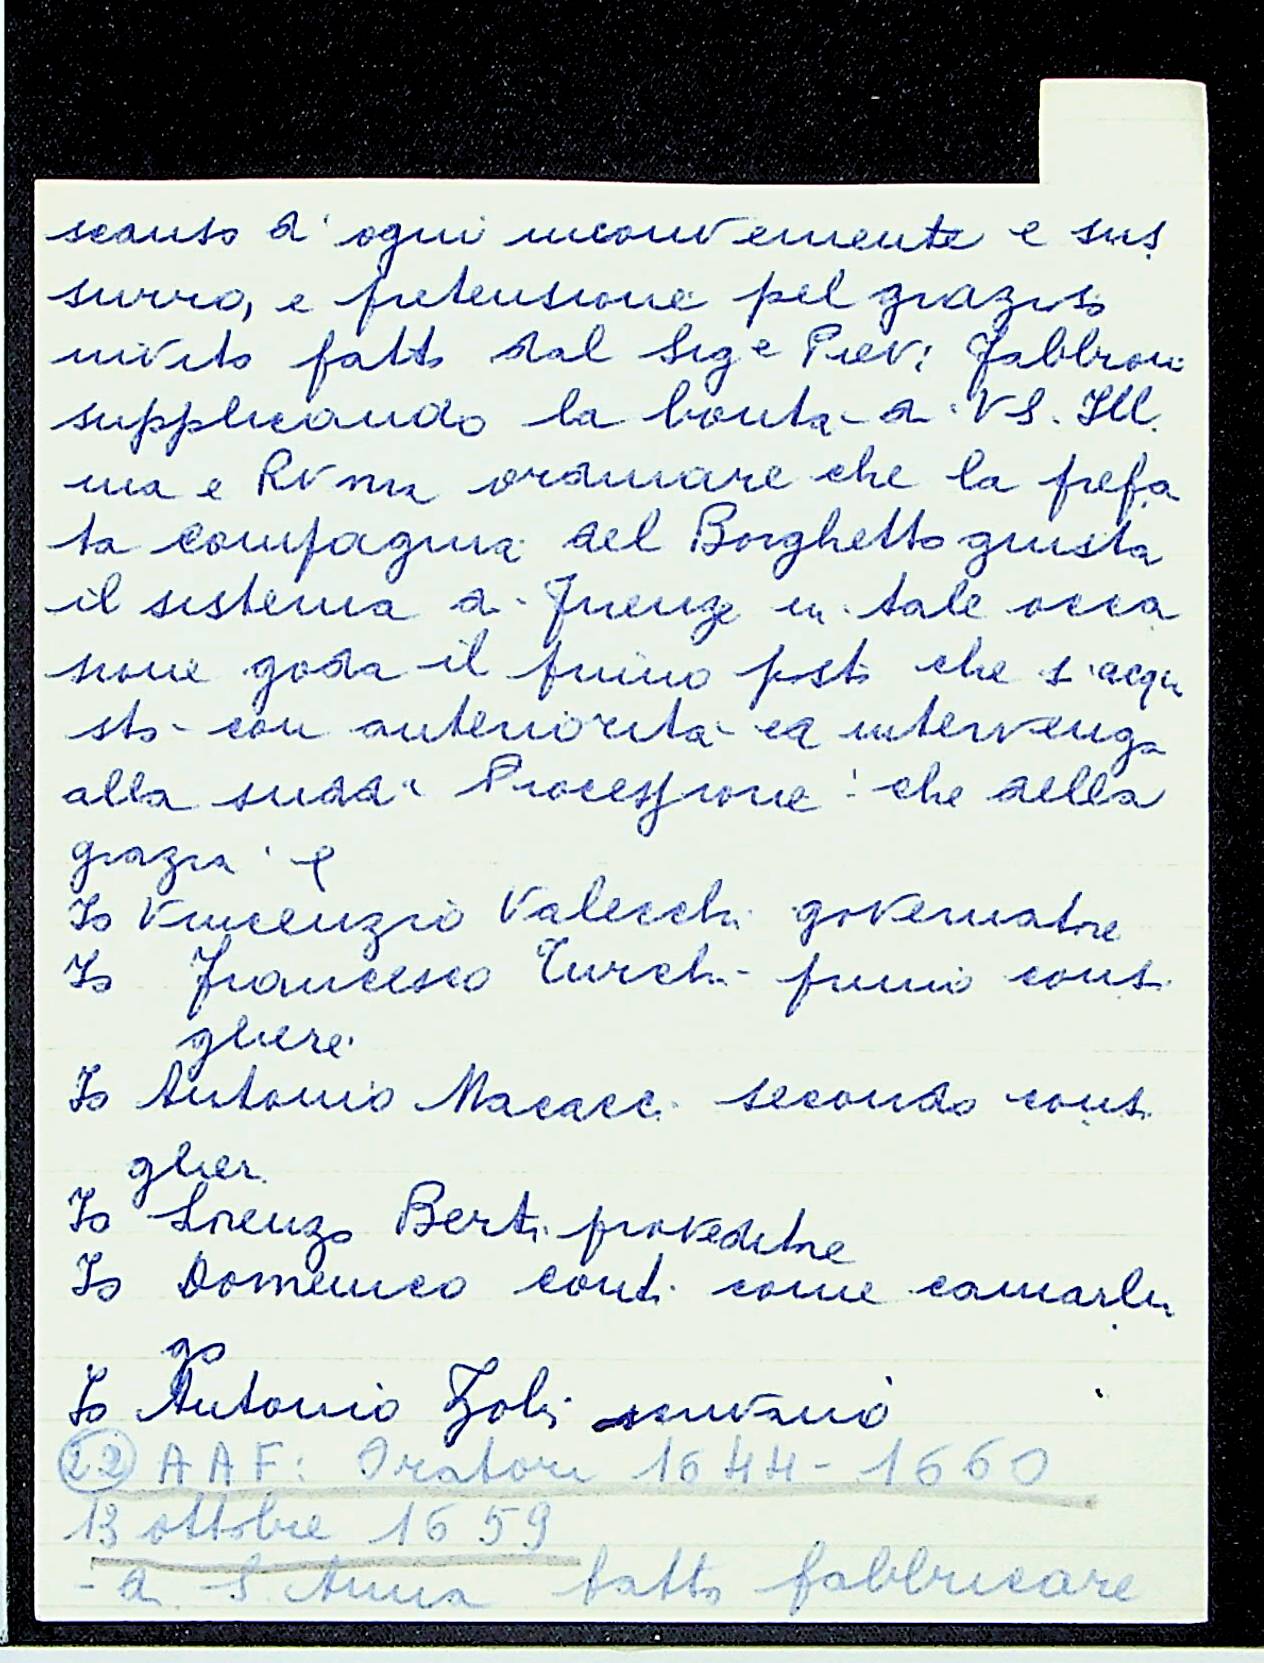 scanso d'ogni inconveniente e sus
surro, e pretensione pel grazioso
invito fatto dal Sig.e Piev: Fabbroni
supplicando la bontà di VS. Ill.
ma e RVma ordinare che la prefa
ta compagnia del Borghetto giusta
il sistema di Firenze in tale occa
sione goda il primo posto che s'acqui
stò con anteriorità ed intervenga
alla sudd.a Processione: che della
grazia e
Io Vincenzio Valecchi governatore
Io Francesco Turchi primo consi
gliere
Io Antonio Macacci secondo consi
glier
Io Lorenzo Berti proveditore
Io Domenico Conti come camarlin
go
Io Antonio Zoli scrivano
22 AAF: Oratori 1644-1660
13 ottobre 1659
- di S. Anna fatto fabbricare